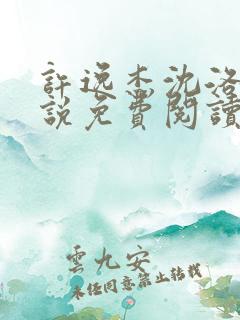 許逸杰沈洛
說免費閱讀
雲九安
未經同意禁止轉載